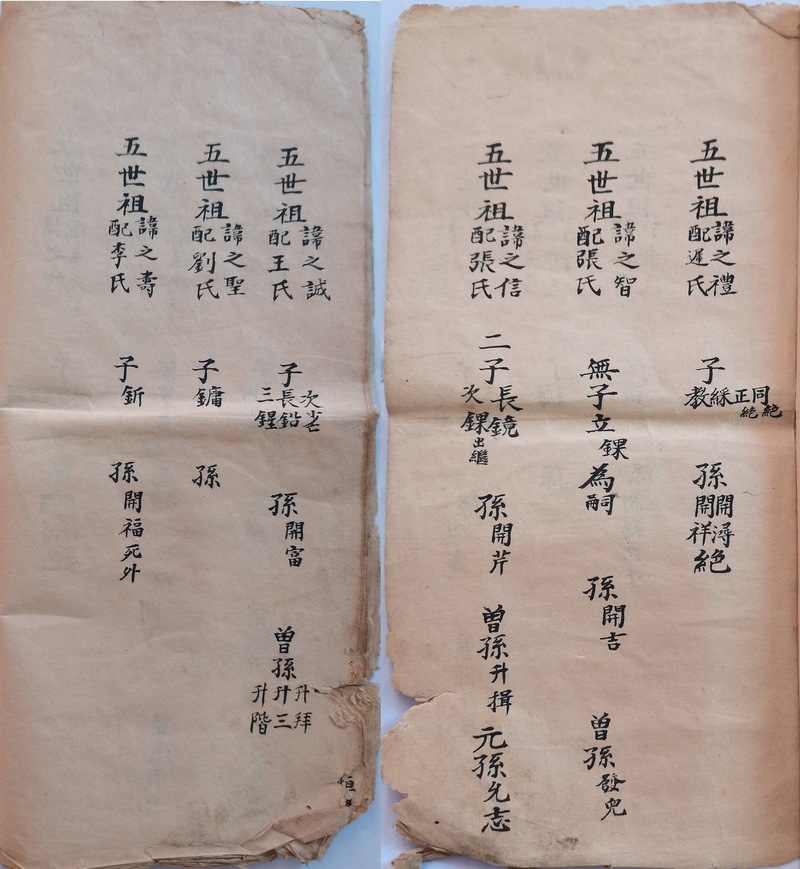 五世祖諱之禮配遲氏 子同絕正絕綵教 孫開潯開祥絕
五世祖諱之智配張氏 無子立錁為嗣 孫開吉 曽孫發兜
五世祖諱之信配張氏 二子長鏡次錁出繼 孫開芹 曽孫升揖 元孫允志
五世祖諱之誠配王氏 子長鉛三鍟 孫開富 曽孫升拜升三升階
恒
五世祖諱之聖配劉氏 子鏞 孫
五世祖諱之壽配李氏 子釿 孫開福死外